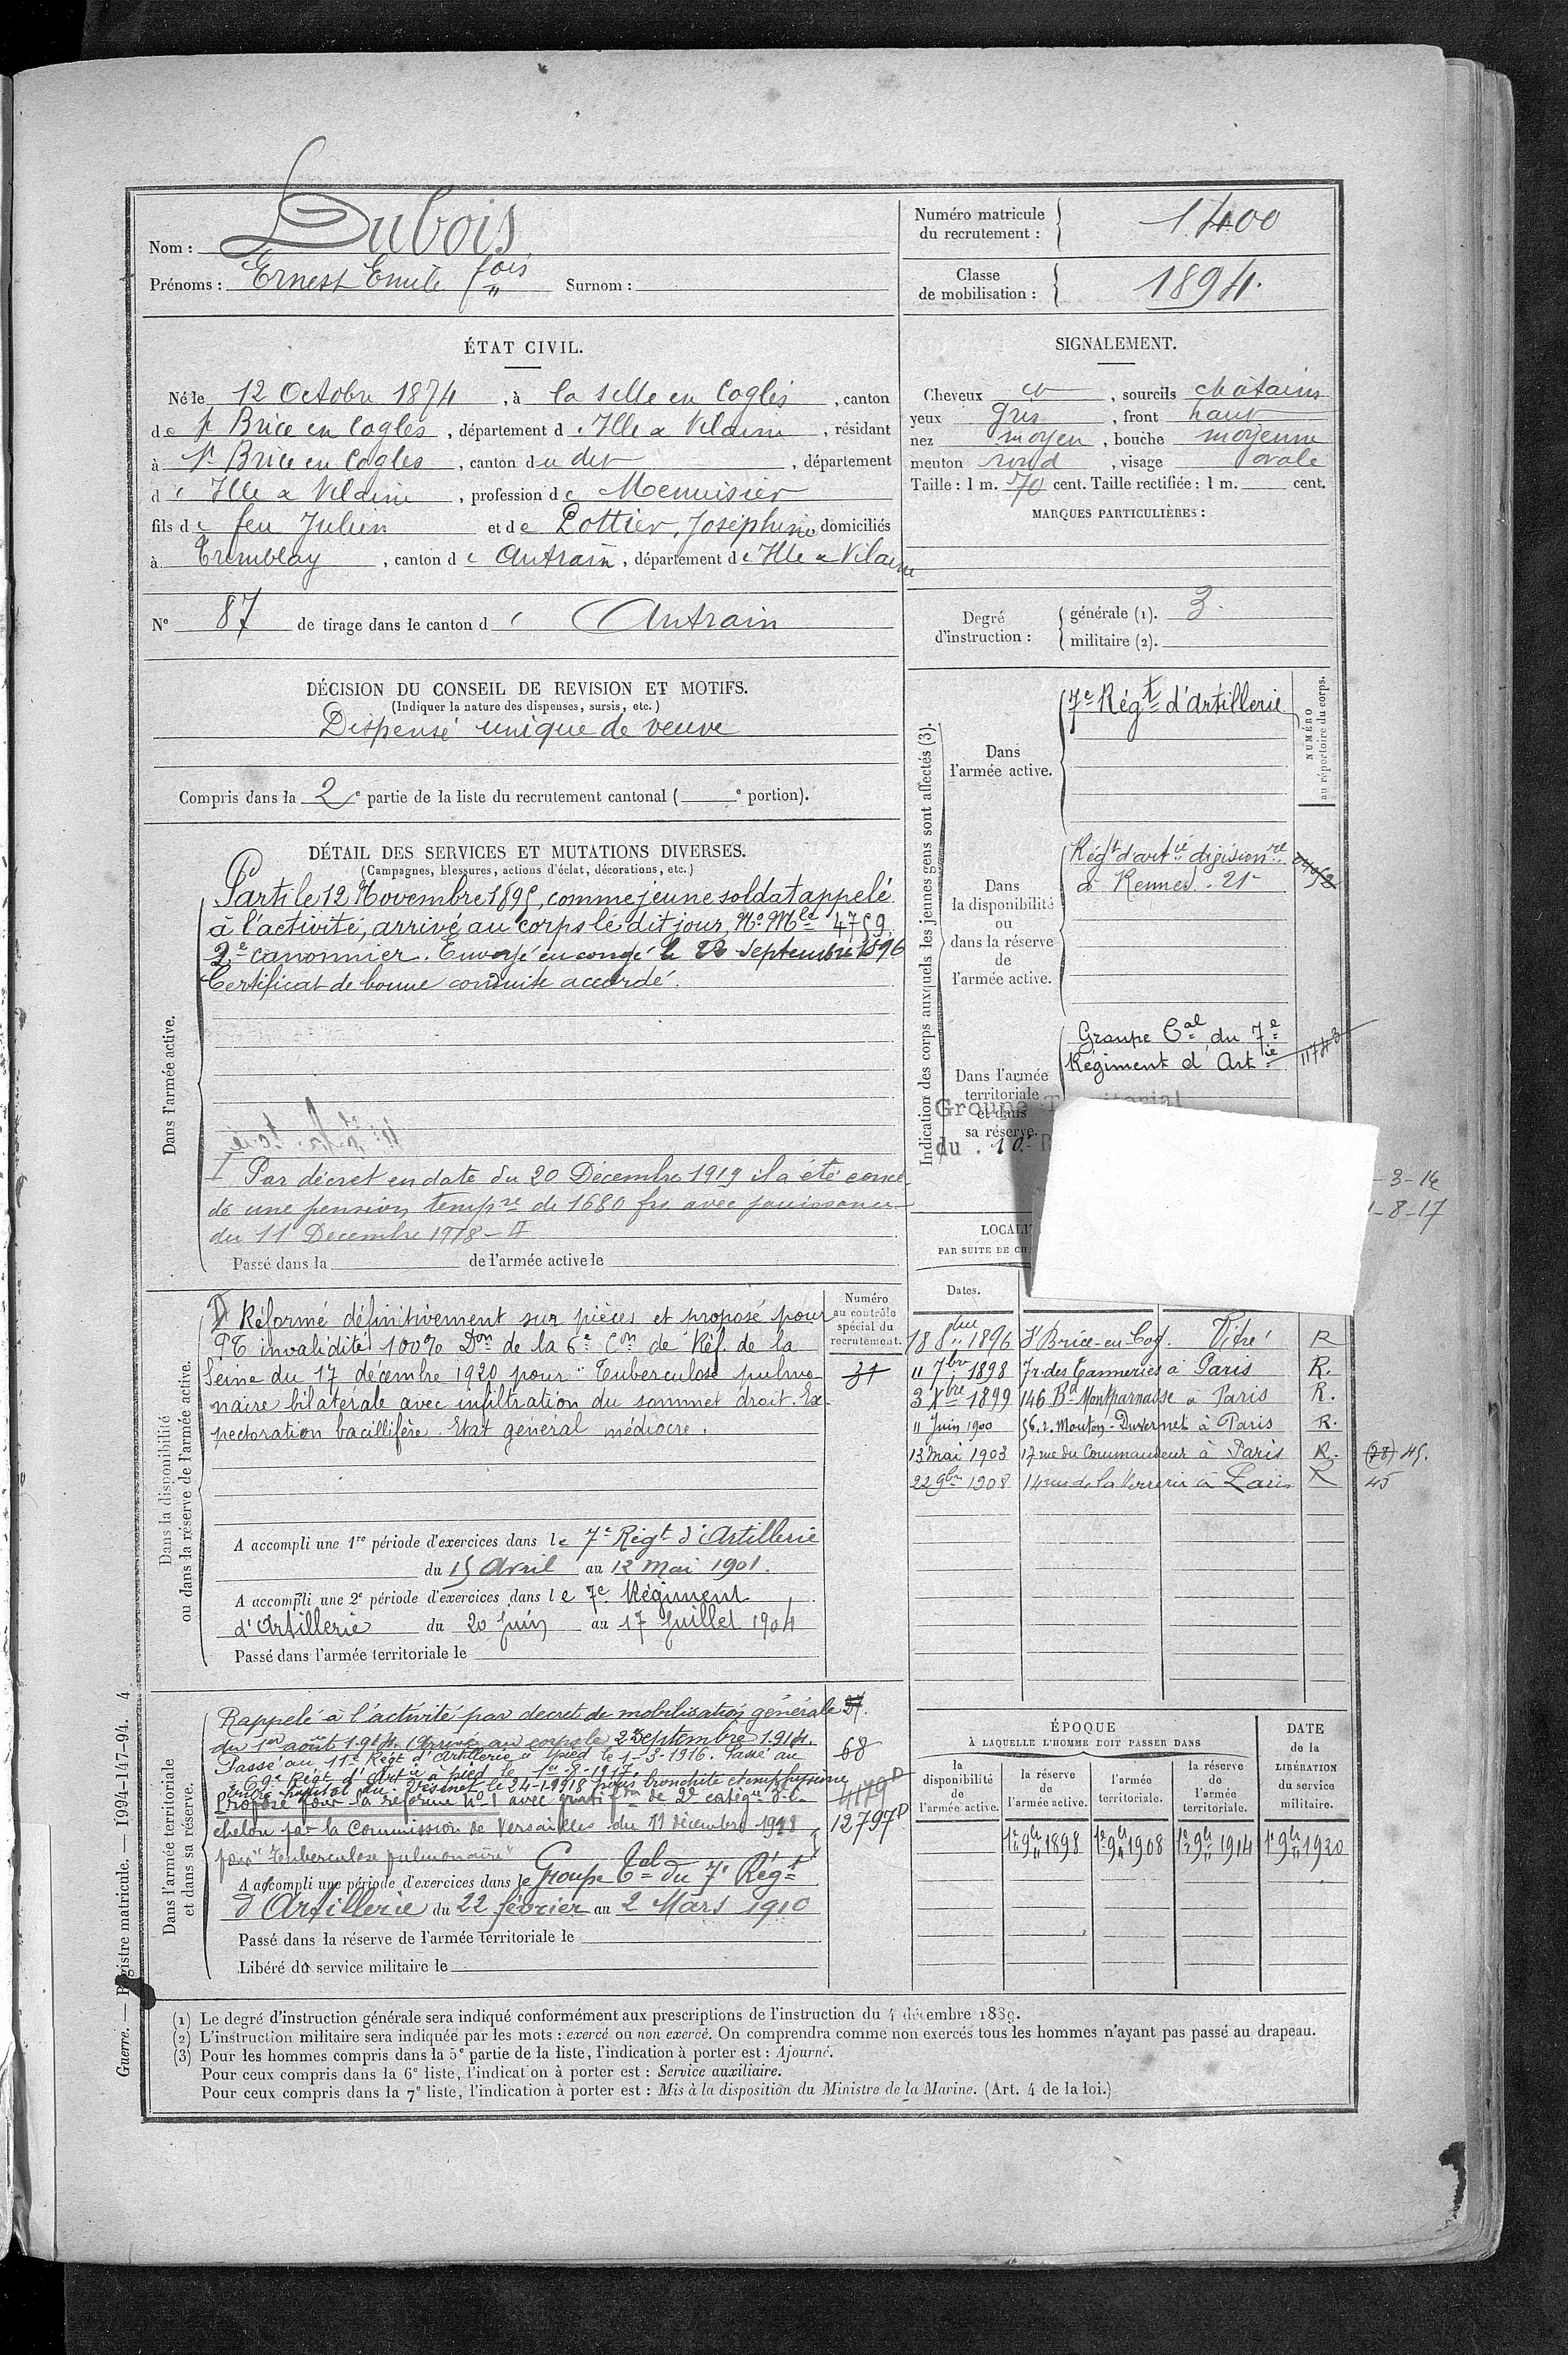 Nom : Dubois
Prénoms : Ernest Emile fois " Surnom :
Numéro matricule
du recrutement : 1400
Classe
de mobilisation : 1894.
ÉTAT CIVIL.
Né le 12 Octobre 1874, à la selle en Coglès, canton
de St Brice en Cogles, département d'Ille & Vilaine, résidant
à St Brice en Cogles, canton du dit, département
d'Ille & Vilaine, profession de Menuisier
fils de feu Julien et de Pottier, Joséphine, domiciliés
à Tremblay, canton d'Antrain, département d'Ille & Vilaine
N° 87 de tirage dans le canton d'Antrain
SIGNALEMENT.
Cheveux et, sourcils châtains
yeux gris, front haut
nez moyen, bouche moyenne
menton rond, visage ovale
Taille : 1 m. 70 cent. Taille rectifiée : 1 m. cent.
MARQUES PARTICULIÈRES :
Degré
d'instruction :
générale (1). 3.
militaire (2).
DÉCISION DU CONSEIL DE REVISION ET MOTIFS.
(Indiquer la nature des dispenses, sursis, etc.)
Dispensé unique de veuve
Compris dans la 2e partie de la liste du recrutement cantonal ( e portion).
DÉTAIL DES SERVICES ET MUTATIONS DIVERSES.
(Campagnes, blessures, actions d'éclat, décorations, etc.)
Dans l'armée active.
Parti le 12 Novembre 1895, comme jeune soldat appelé
à l'activité, arrivé au corps le dit jour, No Mle 4759.
2e canonnier. Envoyé en congé le 22 Septembre 1896
Certificat de bonne conduite accordé.
I Par décret en date du 20 Décembre 1919 il a été concé-
dé une pension tempre de 1680 frs avec jouissance
du 11 Décembre 1918 - II
Passé dans la de l'armée active le
Indication des corps auxquels les jeunes gens sont affectés (3).
NUMÉRO
au répertoire du corps.
Dans
l'armée active.
7e Régt d'artillerie
Dans
la disponibilité
ou
dans la réserve
de
l'armée active.
Régt d'artie divisionre
à Rennes. 21
Dans l'armée
territoriale
et dans
sa réserve.
Groupe Tal du 7e
Régiment d'Artie
1173
Groupe T itorial
du . 10e R
-3-16
1-8-17
LOCALI
PAR SUITE DE CH
Dates.
18 8bre 1896 St Brice-en-Cog. Vitré R
11 7bre 1898 7 r. des Tanneries à Paris R.
3 Xbre 1899 146 Bd Montparnasse à Paris R.
11 Juin 1900 56. r. Mouton-Duvernet à Paris R.
13 Mai 1903 17 rue du Commandeur à Paris R. (78) 45.
22 9bre 1908 14 rue de la Verrerie à Paris R 45
Dans la disponibilité
ou dans la réserve de l'armée active.
Numéro
au contrôle
spécial du
recrutement.
31
II Réformé définitivement sur pièces et proposé pour
PT invalidité 100% Don de la 6e Con de Réf. de la
Seine du 17 décembre 1920 pour " Tuberculose pulmo-
naire bilatérale avec infiltration du sommet droit. Ex-
pectoration bacillifère. Etat général médiocre.
A accompli une 1re période d'exercices dans le 7e Régt d'Artillerie
du 15 Avril au 12 Mai 1901.
A accompli une 2e période d'exercices dans le 7e Régiment
d'Artillerie du 20 Juin au 17 Juillet 1904
Passé dans l'armée territoriale le
Dans l'armée territoriale
et dans sa réserve.
Rappelé à l'activité par decret de mobilisation générale
du 1er août 1914. Arrivé au corps le 2 Septembre 1914.
Passé au 11e Régt d'Artillerie à pied le 1-3-1916. Passé au
69e Régt d'Artie à pied le 1er-8-1917.
Entré hôpital du Vésinet le 24-1-1918 pour bronchite et emphysème
Proposé pour la réforme No 1 avec gratifon de 2e catégie
chelon par la Commission de Versailles du 11 décembre 1918
pour " Tuberculose pulmonaire "
68
4179P
12797P
A accompli une période d'exercices dans le Groupe Tal du 7e Régt
d'Artillerie du 22 février au 2 Mars 1910
Passé dans la réserve de l'armée territoriale le
Libéré du service militaire le
ÉPOQUE
À LAQUELLE L'HOMME DOIT PASSER DANS
DATE
de la
LIBÉRATION
du service
militaire.
la
disponibilité
de
l'armée active.
la réserve
de
l'armée active.
l'armée
territoriale.
la réserve
de
l'armée
territoriale.
1er 9bre 1898 1er 9bre 1908 1er 9bre 1914 1er 9bre 1920
(1) Le degré d'instruction générale sera indiqué conformément aux prescriptions de l'instruction du 4 décembre 1889.
(2) L'instruction militaire sera indiquée par les mots : exercé ou non exercé. On comprendra comme non exercés tous les hommes n'ayant pas passé au drapeau.
(3) Pour les hommes compris dans la 5e partie de la liste, l'indication à porter est : Ajourné.
Pour ceux compris dans la 6e liste, l'indication à porter est : Service auxiliaire.
Pour ceux compris dans la 7e liste, l'indication à porter est : Mis à la disposition du Ministre de la Marine. (Art. 4 de la loi.)
Guerre. — Registre matricule. — 1994-147-94. 4